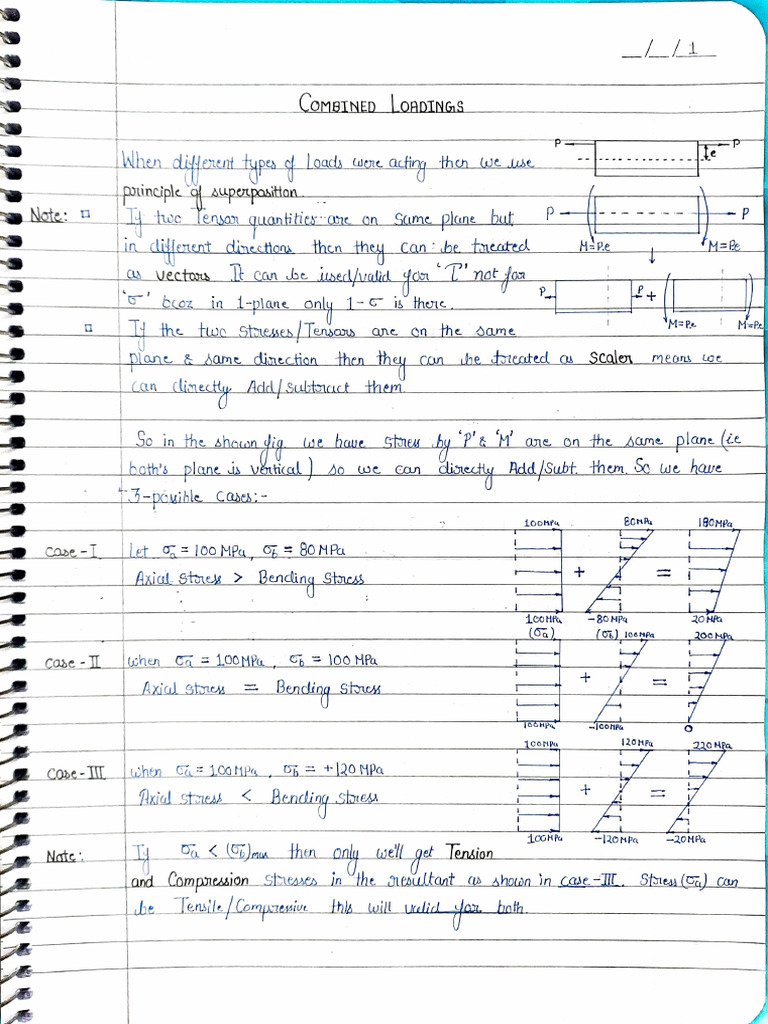 __/__/ 1
COMBINED LOADINGS
When different types of Loads were acting then we use
principle of superposition.
Note: If two Tensor quantities are on same plane but
in different directions then they can be treated
as vectors. It can be used/valid for 'τ' not for
'σ' bcoz in 1-plane only 1-σ is there.
If the two stresses/Tensors are on the same
plane & same direction then they can be treated as scaler means we
can directly Add/subtract them.
P P
e
P P
M=P.e M=P.e
P P + M=P.e M=P.e
So in the shown fig. we have stress by 'P' & 'M' are on the same plane (i.e
both's plane is vertical) so we can directly Add/Subt. them. So we have
3-possible cases:-
Case-I Let σa = 100 MPa, σb = 80 MPa
Axial stress > Bending stress
100MPa 80MPa 180MPa
+ =
100MPa -80MPa 20MPa
(σa) (σb)
Case-II when σa = 100MPa, σb = 100 MPa
Axial stress = Bending stress
100MPa 200MPa
+ =
100MPa -100MPa 0
Case-III when σa = 100MPa, σb = +120 MPa
Axial stress < Bending stress
100MPa 120MPa 220MPa
+ =
100MPa -120MPa -20MPa
Note: If σa < (σb)max then only we'll get Tension
and Compression stresses in the resultant as shown in case-III. Stress (σa) can
be Tensile/Compressive this will valid for both.